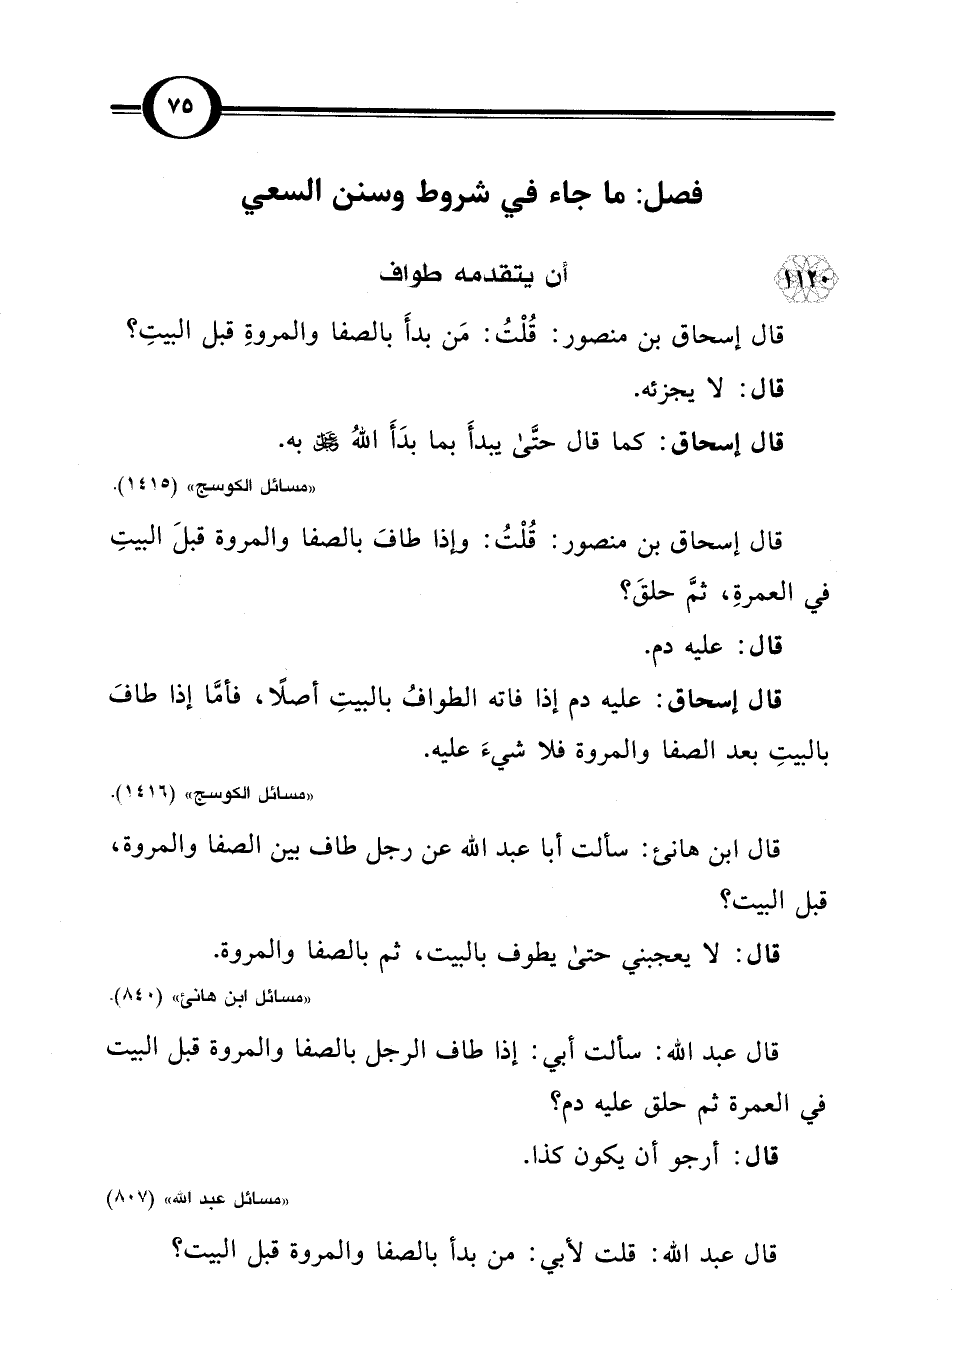 ٧٥
فصل: ما جاء في شروط وسنن السعي
١١٢٠ أن يتقدمه طواف
قال إسحاق بن منصور: قُلْتُ: مَن بدأَ بالصفا والمروةِ قبل البيتِ؟
قال: لا يجزئه.
قال إسحاق: كما قال حتَّىٰ يبدأَ بما بدَأَ اللهُ ﷻ به.
«مسائل الكوسج» (١٤١٥).
قال إسحاق بن منصور: قُلْتُ: وإذا طافَ بالصفا والمروة قبلَ البيتِ
في العمرةِ، ثمَّ حلقَ؟
قال: عليه دم.
قال إسحاق: عليه دم إذا فاته الطوافُ بالبيتِ أصلًا، فأمَّا إذا طافَ
بالبيتِ بعد الصفا والمروة فلا شيءَ عليه.
«مسائل الكوسج» (١٤١٦).
قال ابن هانئ: سألت أبا عبد الله عن رجل طاف بين الصفا والمروة،
قبل البيت؟
قال: لا يعجبني حتىٰ يطوف بالبيت، ثم بالصفا والمروة.
«مسائل ابن هانئ» (٨٤٠).
قال عبد الله: سألت أبي: إذا طاف الرجل بالصفا والمروة قبل البيت
في العمرة ثم حلق عليه دم؟
قال: أرجو أن يكون كذا.
«مسائل عبد الله» (٨٠٧)
قال عبد الله: قلت لأبي: من بدأ بالصفا والمروة قبل البيت؟